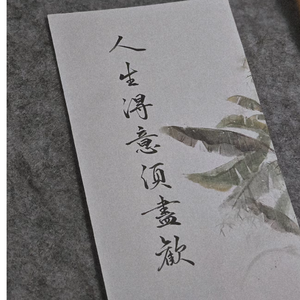 人生得意须盡歡